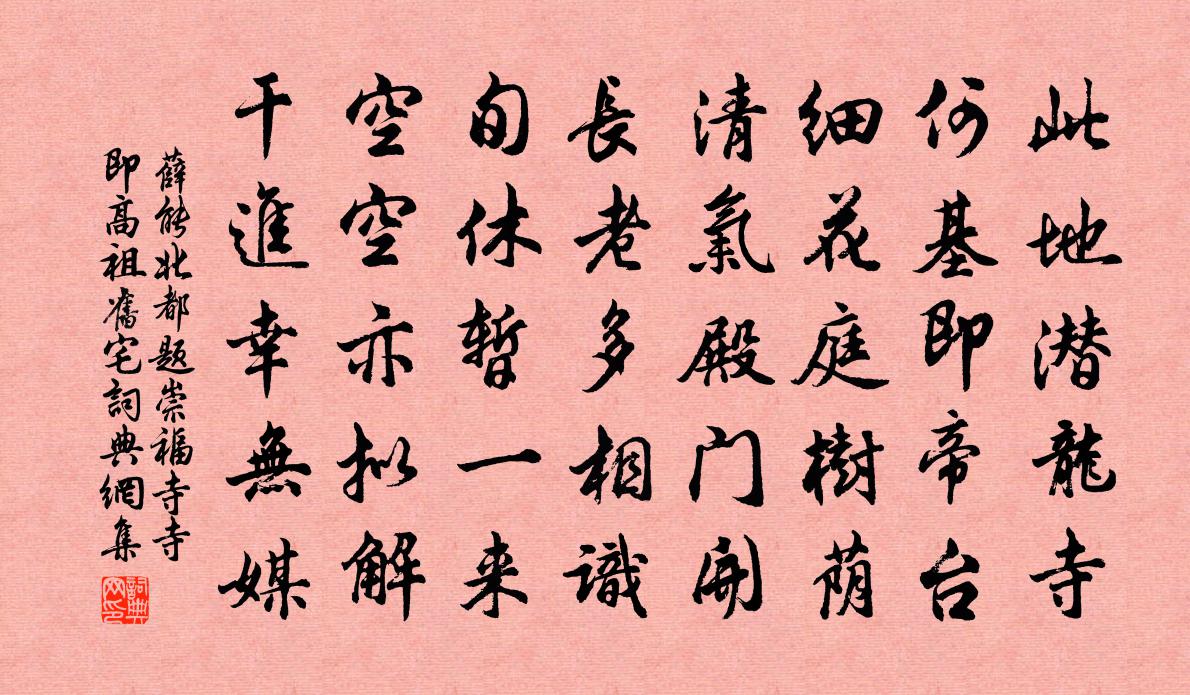 此地潜龍寺
何基即帝台
细花庭樹荫
清氣殿门開
長老多相識
旬休暫一来
空空亦拟解
干進幸無媒
薛能北都題崇福寺寺
即高祖舊宅詞典網集
詞典网印